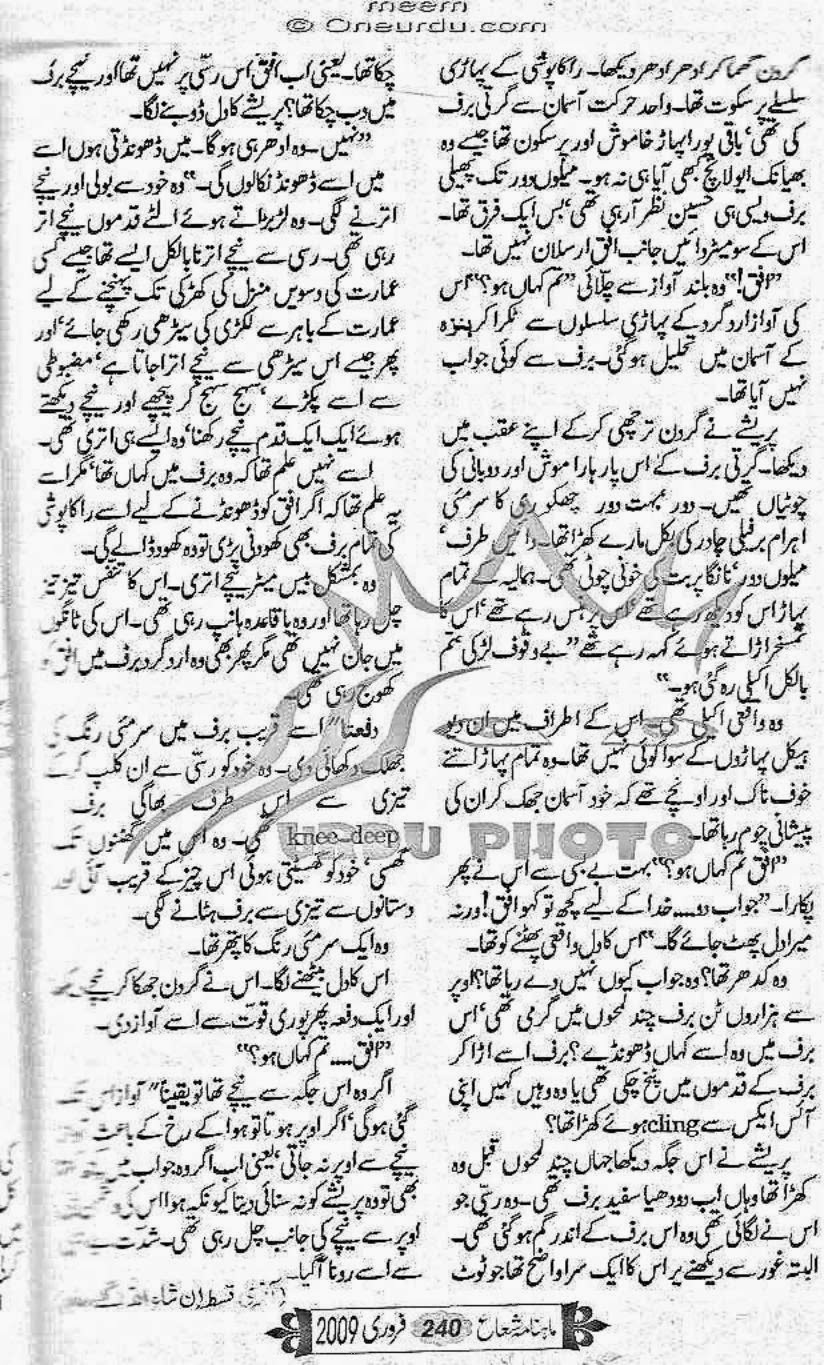 meem
© Oneurdu.com
گردن گھما کر ادھر ادھر دیکھا۔ راکاپوشی کے پہاڑی
سلسلے پر سکوت تھا۔ واحد حرکت آسمان سے گرتی برف
کی تھی، باقی پورا پہاڑ خاموش اور پرسکون تھا جیسے وہ
بھیانک ایولانچ کبھی آیا ہی نہ ہو۔ میلوں دور تک پھیلی
برف ویسی ہی حسین نظر آرہی تھی، بس ایک فرق تھا۔
اس کے سو میٹر دائیں جانب افق ارسلان نہیں تھا۔
”افق!“ وہ بلند آواز سے چلائی ”تم کہاں ہو؟“ اس
کی آواز ارد گرد کے پہاڑی سلسلوں سے ٹکرا کر ہنزہ
کے آسمان میں تحلیل ہوگئی۔ برف سے کوئی جواب
نہیں آیا تھا۔
پریشے نے گردن ترچھی کرکے اپنے عقب میں
دیکھا۔ گرتی برف کے اس پار ہاراموش اور دوبانی کی
چوٹیاں تھیں۔ دور بہت دور چھکوری کا سرمئی
اہرام برفیلی چادر کی بکل مارے کھڑا تھا۔ دائیں طرف،
میلوں دور، نانگا پربت کی خونی چوٹی تھی۔ ہمالیہ کے تمام
پہاڑ اس کو دیکھ رہے تھے، اس پر ہنس رہے تھے، اس کا
تمسخر اڑاتے ہوئے کہہ رہے تھے ”بے وقوف لڑکی، تم
بالکل اکیلی رہ گئی ہو۔“
وہ واقعی اکیلی تھی۔ اس کے اطراف میں ان دیو
ہیکل پہاڑوں کے سوا کوئی نہیں تھا۔ وہ تمام پہاڑ اتنے
خوف ناک اور اونچے تھے کہ خود آسمان جھک کر ان کی
پیشانی چوم رہا تھا۔
”افق تم کہاں ہو؟“ بہت بے بسی سے اس نے پھر
پکارا۔ ”جواب دو.... خدا کے لیے کچھ تو کہو افق! ورنہ
میرا دل پھٹ جائے گا۔“ اس کا دل واقعی پھٹنے کو تھا۔
وہ کدھر تھا؟ وہ جواب کیوں نہیں دے رہا تھا؟ اوپر
سے ہزاروں ٹن برف چند لمحوں میں گرمی تھی، اس
برف میں وہ اسے کہاں ڈھونڈے؟ برف اسے اڑا کر
برف کے قدموں میں پٹخ چکی تھی یا وہ وہیں کہیں اپنی
آئس ایکس سے cling ہوئے کھڑا تھا؟
پریشے نے اس جگہ دیکھا جہاں چند لمحوں قبل وہ
کھڑا تھا وہاں اب دودھیا سفید برف تھی۔ وہ رسّی جو
اس نے لگائی تھی وہ اس برف کے اندر گم ہوگئی تھی۔
البتہ غور سے دیکھنے پر اس کا ایک سرا واضح تھا جو ٹوٹ
چکا تھا۔ یعنی اب افق اس رسّی پر نہیں تھا اور نیچے برف
میں دب چکا تھا؟ پریشے کا دل ڈوبنے لگا۔
”نہیں۔ وہ ادھر ہی ہوگا۔ میں ڈھونڈتی ہوں اسے
میں اسے ڈھونڈ نکالوں گی۔“ وہ خود سے بولی اور نیچے
اترنے لگی۔ وہ لڑبڑاتے ہوئے الٹے قدموں نیچے اتر
رہی تھی۔ رسی سے نیچے اترنا بالکل ایسے تھا جیسے کسی
عمارت کی دسویں منزل کی کھڑکی تک پہنچنے کے لیے
عمارت کے باہر سے لکڑی کی سیڑھی رکھی جائے، اور
پھر جیسے اس سیڑھی سے نیچے اترا جاتا ہے، مضبوطی
سے اسے پکڑے، سہج سہج کر پیچھے اور نیچے دیکھتے
ہوئے ایک ایک قدم نیچے رکھنا، وہ ایسے ہی اتری تھی۔
اسے نہیں علم تھا کہ وہ برف میں کہاں تھا، مگر اسے
یہ علم تھا کہ اگر افق کو ڈھونڈنے کے لیے اسے راکاپوشی
کی تمام برف بھی کھودنی پڑی تو وہ کھود ڈالے گی۔
وہ بمشکل بیس میٹر نیچے اتری۔ اس کا تنفس تیز تیز
چل رہا تھا اور وہ باقاعدہ ہانپ رہی تھی۔ اس کی ٹانگوں
میں جان نہیں تھی مگر پھر بھی وہ ارد گرد برف میں افق کو
کھوج رہی تھی۔
دفعتا“ اسے قریب برف میں سرمئی رنگ کی
جھلک دکھائی دی۔ وہ خود کو رسّی سے ان کلپ کرکے
تیزی سے اس طرف بھاگی برف
knee-deep تھی۔ وہ اس میں گھٹنوں تک
دھنسی، خود کو گھسیٹتی ہوئی اس چیز کے قریب آئی اور
دستانوں سے تیزی سے برف ہٹانے لگی۔
وہ ایک سرمئی رنگ کا پتھر تھا۔
اس کا دل بیٹھنے لگا۔ اس نے گردن جھکا کر نیچے دیکھا
اور ایک دفعہ پھر پوری قوت سے اسے آواز دی۔
”افق.... تم کہاں ہو؟“
اگر وہ اس جگہ سے نیچے تھا تو یقینا“ آواز اس تک
گئی ہوگی، اگر اوپر ہوتا تو ہوا کے رخ کے باعث آواز
نیچے سے اوپر نہ جاتی، یعنی اب اگر وہ جواب میں
بھی تو وہ پریشے کو نہ سنائی دیتا کیونکہ ہوا اس کی
اوپر سے نیچے کی جانب چل رہی تھی۔ شدت
سے اسے رونا آگیا۔
آخری قسط ان شاءاللہ
URDU PHOTO
ماہنامہ شعاع 240 فروری 2009